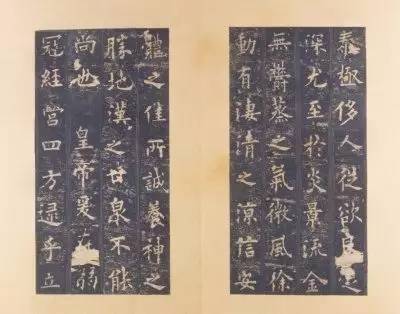 泰極侈人從欲
深尤至於炎景流金
無欝蒸之氣微風徐
動有淒清之涼信安
體之佳所誠養神之
勝地漢之甘泉不能
尚也 皇帝爰在弱
冠經營四方逮乎立